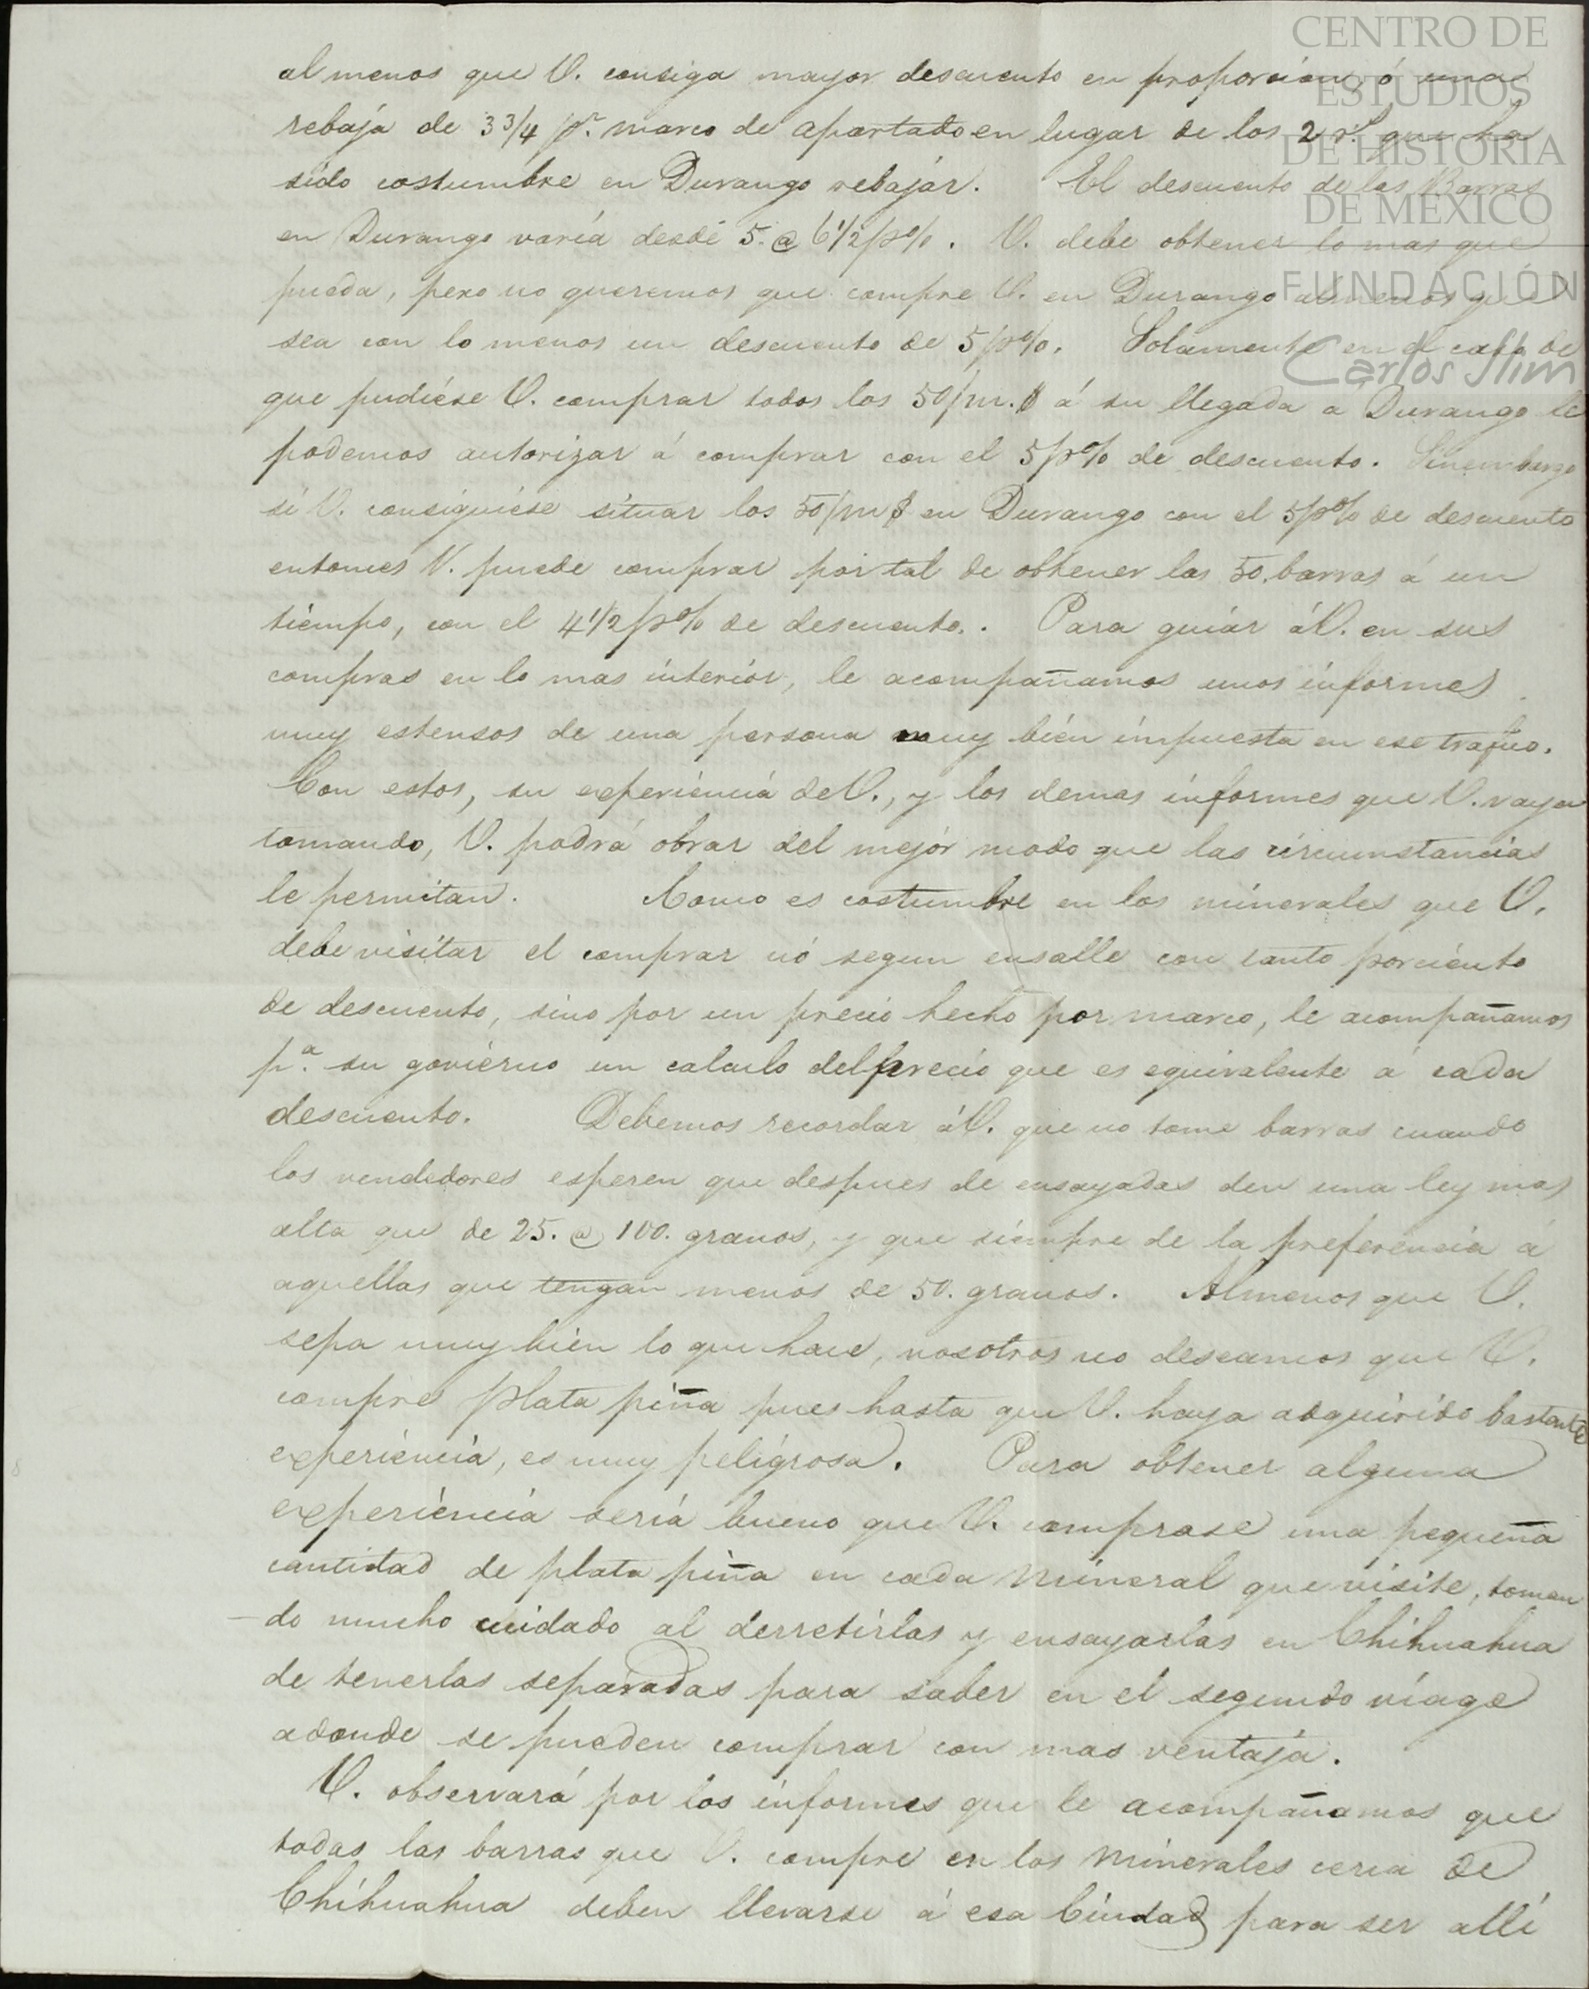 CENTRO DE
ESTUDIOS
DE HISTORIA
DE MÉXICO
FUNDACIÓN
Carlos Slim
al menos que V. consiga mayor descuento en proporcion, ó una
rebaja de 3 3/4 pr. marco de apartado en lugar de los 2 rs. que ha
sido costumbre en Durango rebajár. El descuento de las Barras
en Durango varía desde 5. @ 6 1/2 p%. V. debe obtener lo mas que
pueda, pero no queremos que compre V. en Durango almenos que
sea con lo menos un descuento de 5 p%. Solamente en el caso de
que pudiése V. comprar todos los 50/m.$ á su llegada a Durango le
podemos autorizar á comprar con el 5 p% de descuento. Sinembargo
si V. consiguiése situar los 50/m $ en Durango con el 5 p% de descuento
entonces V. puede comprar por tal de obtener las 50. barras á un
tiempo, con el 4 1/2 p% de descuento. Para guiár á V. en sus
compras en lo mas interiór, le acompañamos unos informes
muy estensos de una persona muy bién impuesta en ese trafico.
Con estos, su experiéncia de V., y los demas informes que V. vaya
tomando, V. podrá obrar del mejór modo que las circumstancias
le permitan. Como es costumbre en los minerales que V.
debe visitar el comprar nó segun ensalle con tanto porciénto
de descuento, sino por un precio hecho por marco, le acompañamos
pa. su goviérno un calculo del precio que es equivalente á cada
descuento. Debemos recordar á V. que no tome barras cuando
los vendedores esperen que despues de ensayadas den una ley mas
alta que de 25. @ 100. granos, y que siémpre de la preferencia á
aquellas que tengan menos de 50. granos. Almenos que V.
sepa muy bién lo que hace, nosotros no deseamos que V.
compre plata piña pues hasta que V. haya adquirido bastante
experiéncia, es muy peligrosa. Para obtener alguna
experiéncia sería bueno que V. comprase una pequeña
cantidad de plata piña en cada mineral que visite, toman
-do mucho cuidado al derretirlas y ensayarlas en Chihuahua
de tenerlas separadas para saber en el segundo viage
adonde se pueden comprar con mas ventaja.
V. observará por los informes que le acompañamos que
todas las barras que V. compre en los minerales cerca de
Chihuahua deben llevarse á esa Ciudad para ser allí